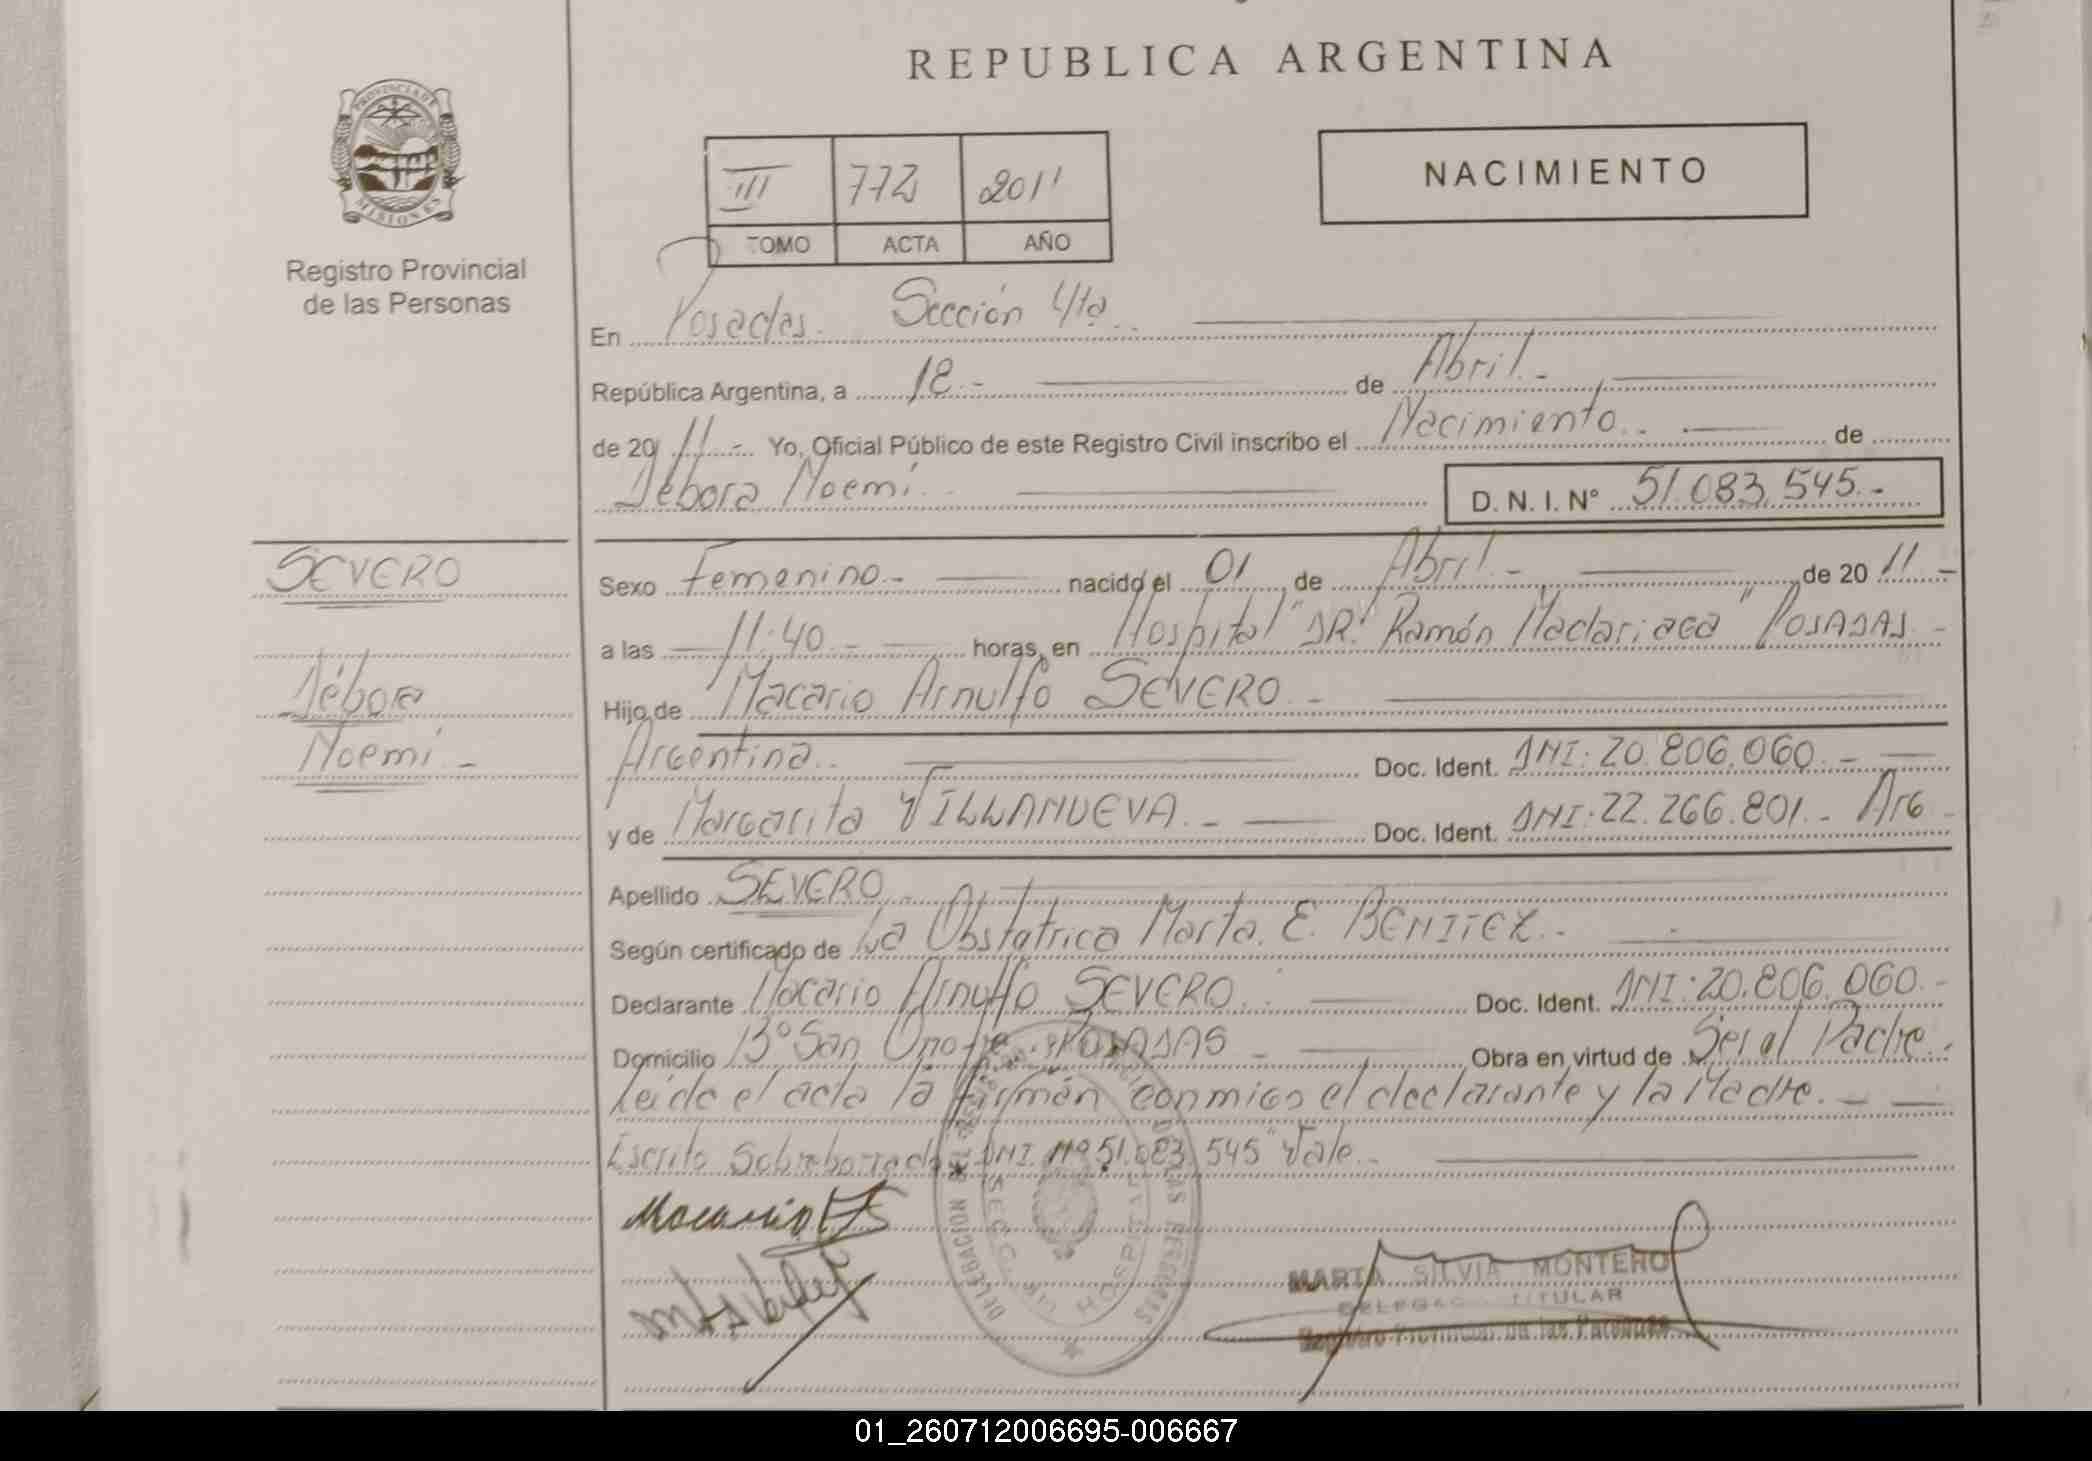 REPUBLICA ARGENTINA
PROVINCIA DE
MISIONES
Registro Provincial
de las Personas
III 772 2011
TOMO ACTA AÑO
NACIMIENTO
En Posadas. Sección 4ta.
República Argentina, a 18.- de Abril.-
de 2011.- Yo, Oficial Público de este Registro Civil inscribo el Nacimiento.. de
Débora Noemí.. D. N. I. N° 51.083.545.-
SEVERO
Débora
Noemí.-
Sexo Femenino.- nacido el 01 de Abril.- de 2011.-
a las 11:40.- horas, en Hospital "DR. Ramón Madariaga" POSADAS.-
Hijo de Macario Arnulfo SEVERO.-
Argentina.. Doc. Ident. DNI: 20.806.060.-
y de Margarita VILLANUEVA.- Doc. Ident. DNI: 22.266.801.- Arg
Apellido SEVERO.-
Según certificado de La Obstatrica Marta. E. BENITEZ.-
Declarante Macario Arnulfo SEVERO.. Doc. Ident. DNI: 20.806.060.-
Domicilio B° San Onofre. POSADAS - Obra en virtud de Ser al Padre.
Leída el acta la firmán conmigo el declarante y la Madre.-
Escrito Sobreborrado "DNI N° 51.083.545" Vale.-
Macario
DELEGACION DEL REGISTRO PROVINCIAL DE LAS PERSONAS
SECC. 4ta HOSPITAL
MARTA SILVIA MONTERO
DELEGADO TITULAR
Registro Provincial de las Personas
01_260712006695-006667